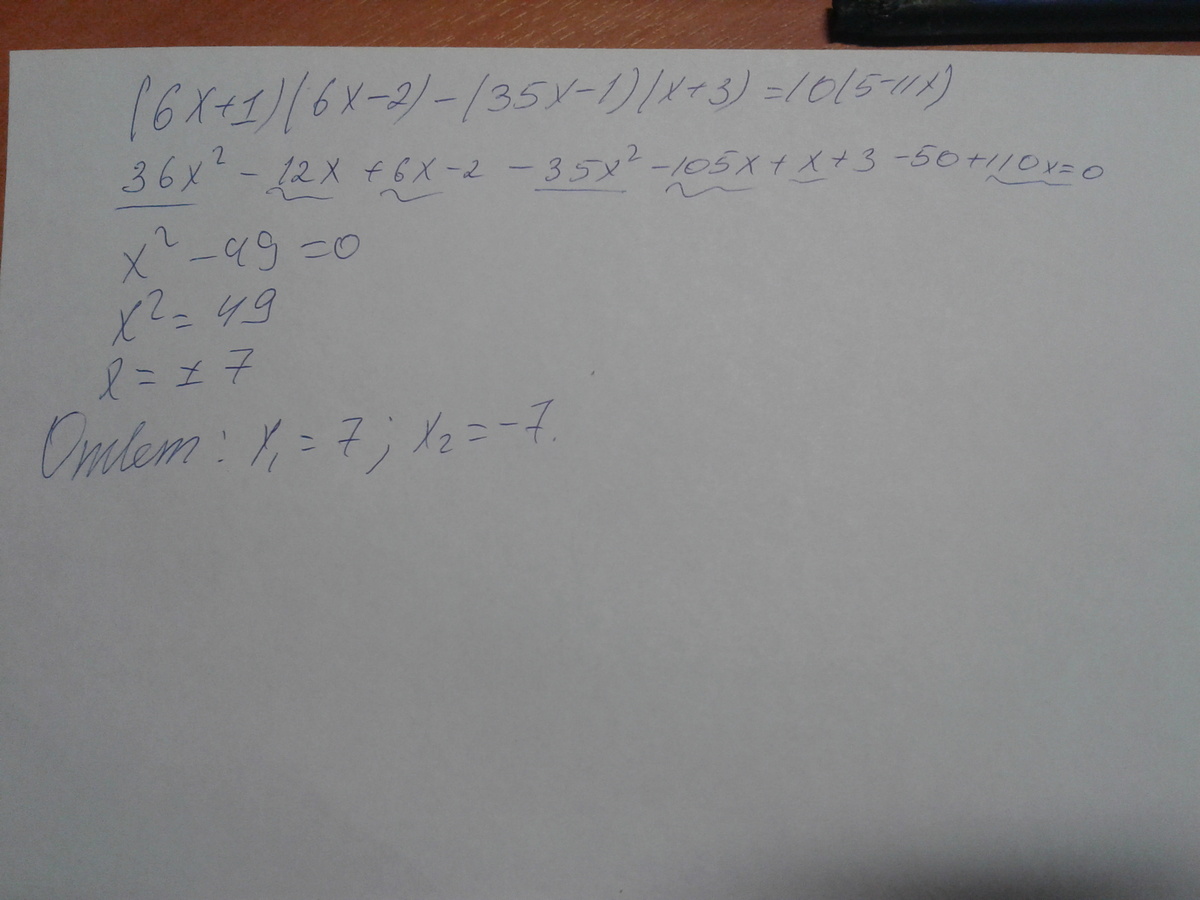 (6x+1)(6x-2)-(35x-1)(x+3)=10(5-11x)
36x² - 12x + 6x - 2 - 35x² - 105x + x + 3 - 50 + 110x = 0
x² - 49 = 0
x² = 49
x = ± 7
Ответ: x₁ = 7; x₂ = -7.